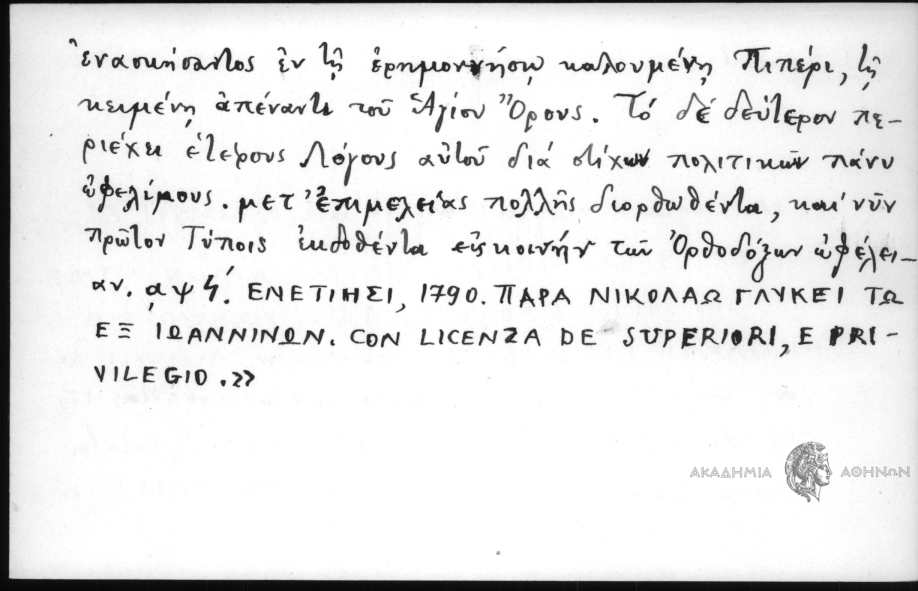 ἐνασκήσαντος ἐν τῇ ἐρημονήσῳ καλουμένῃ Πιπέρι, τῇ
κειμένῃ ἀπέναντι τοῦ Ἁγίου Ὄρους. Τό δέ δεύτερον πε-
ριέχει ἑτέρους Λόγους αὐτοῦ διά στίχων πολιτικῶν πάνυ
ὠφελίμους. μετ' ἐπιμελείας πολλῆς διορθωθέντα, καί νῦν
πρῶτον Τύποις ἐκδοθέντα εἰς κοινήν τῶν Ὀρθοδόξων ὠφέλει-
αν. ͵αψϟ΄. ΕΝΕΤΙΗΣΙ, 1790. ΠΑΡΑ ΝΙΚΟΛΑΩ ΓΛΥΚΕΙ ΤΩ
ΕΞ ΙΩΑΝΝΙΝΩΝ. CON LICENZA DE SUPERIORI, E PRI-
VILEGIO.»
ΑΚΑΔΗΜΙΑ ΑΘΗΝΩΝ